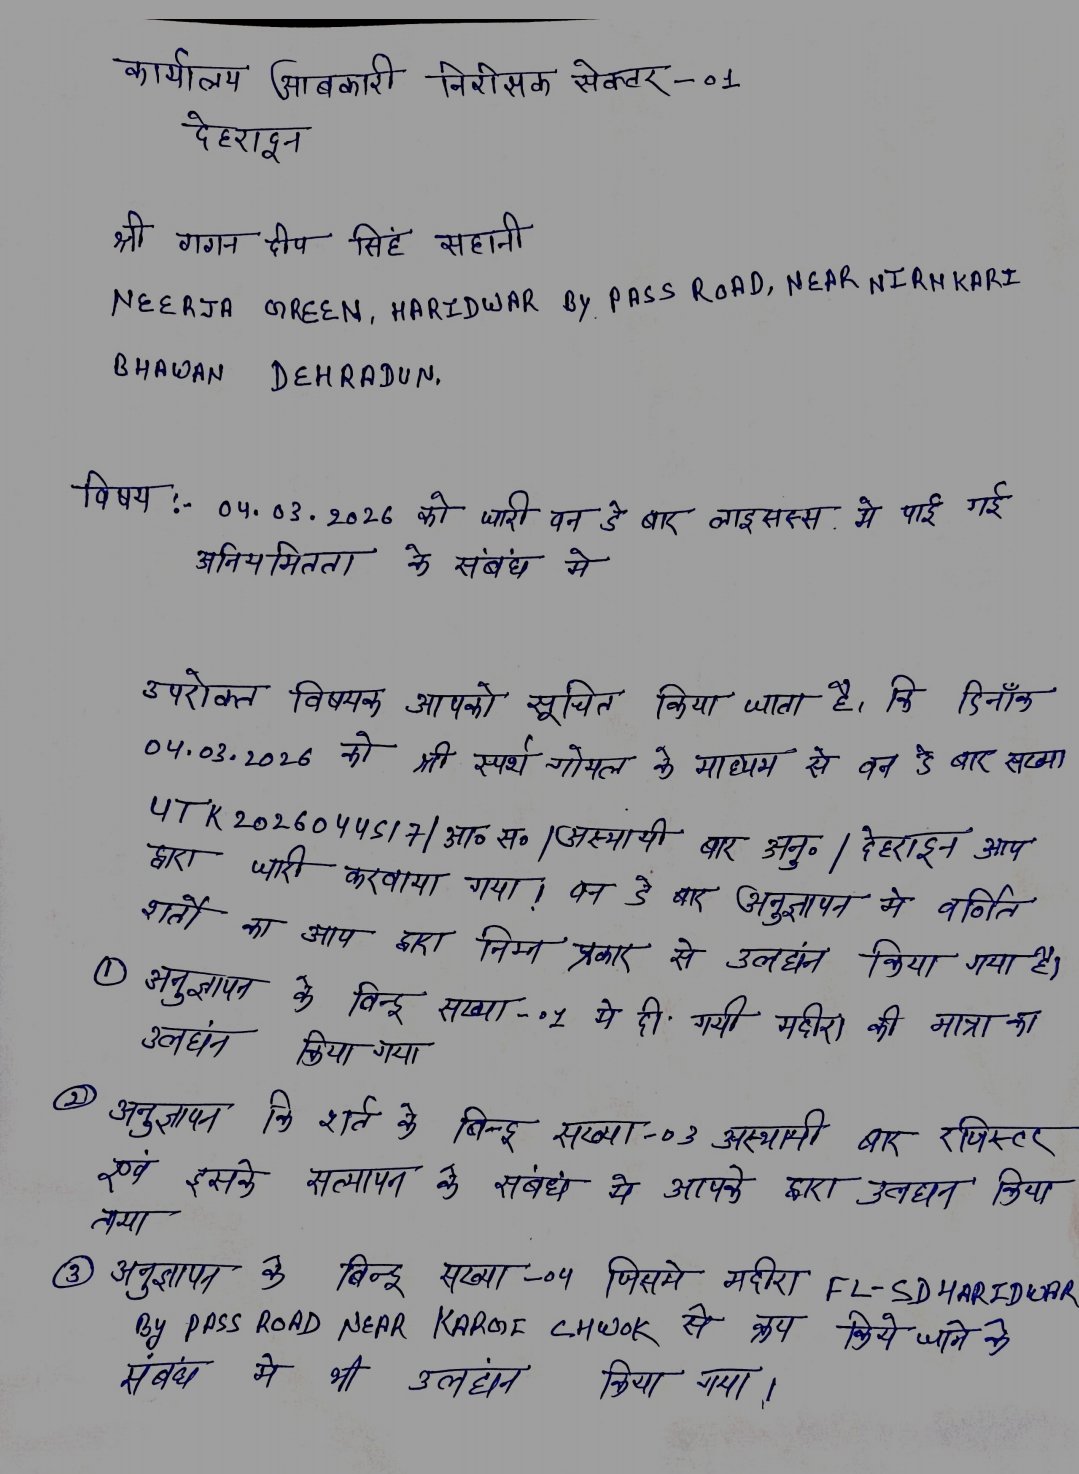 कार्यालय आबकारी निरीक्षक सेक्टर -01
देहरादून
श्री गगन दीप सिहं सहानी
NEERJA GREEN, HARIDWAR By PASS ROAD, NEAR NIRNKARI
BHAWAN DEHRADUN.
विषय :- 04.03.2026 को जारी वन डे बार लाइसस्स मे पाई गई
अनियमितता के संबंध मे
उपरोक्त विषयक आपको सूचित किया जाता है, कि दिनाँक
04.03.2026 को श्री स्पर्थ गोयल के माध्यम से वन डे बार सख्या
UTK2026044517/आ० स० /अस्थायी बार अनु० / देहरादून आप
द्वारा जारी करवाया गया। वन डे बार अनुज्ञापन मे वर्णित
शर्तो का आप द्वारा निम्न प्रकार से उलघंन किया गया है।
① अनुज्ञापन के विन्दू सख्या -01 मे दी गयी मदीरा की मात्रा का
उलघंन किया गया
② अनुज्ञापन कि शर्त के बिन्दू सख्या -03 अस्थायी बार रजिस्टर
एवं इसके सत्यापन के संबधं मे आपके द्वारा उलघन किया
गया
③ अनुज्ञापन के बिन्दू सख्या -04 जिसमे मदीरा FL-5D HARIDWAR
By PASS ROAD NEAR KARGI CHWOK से क्रय किये जाने के
संबंध मे भी उलघंन किया गया।